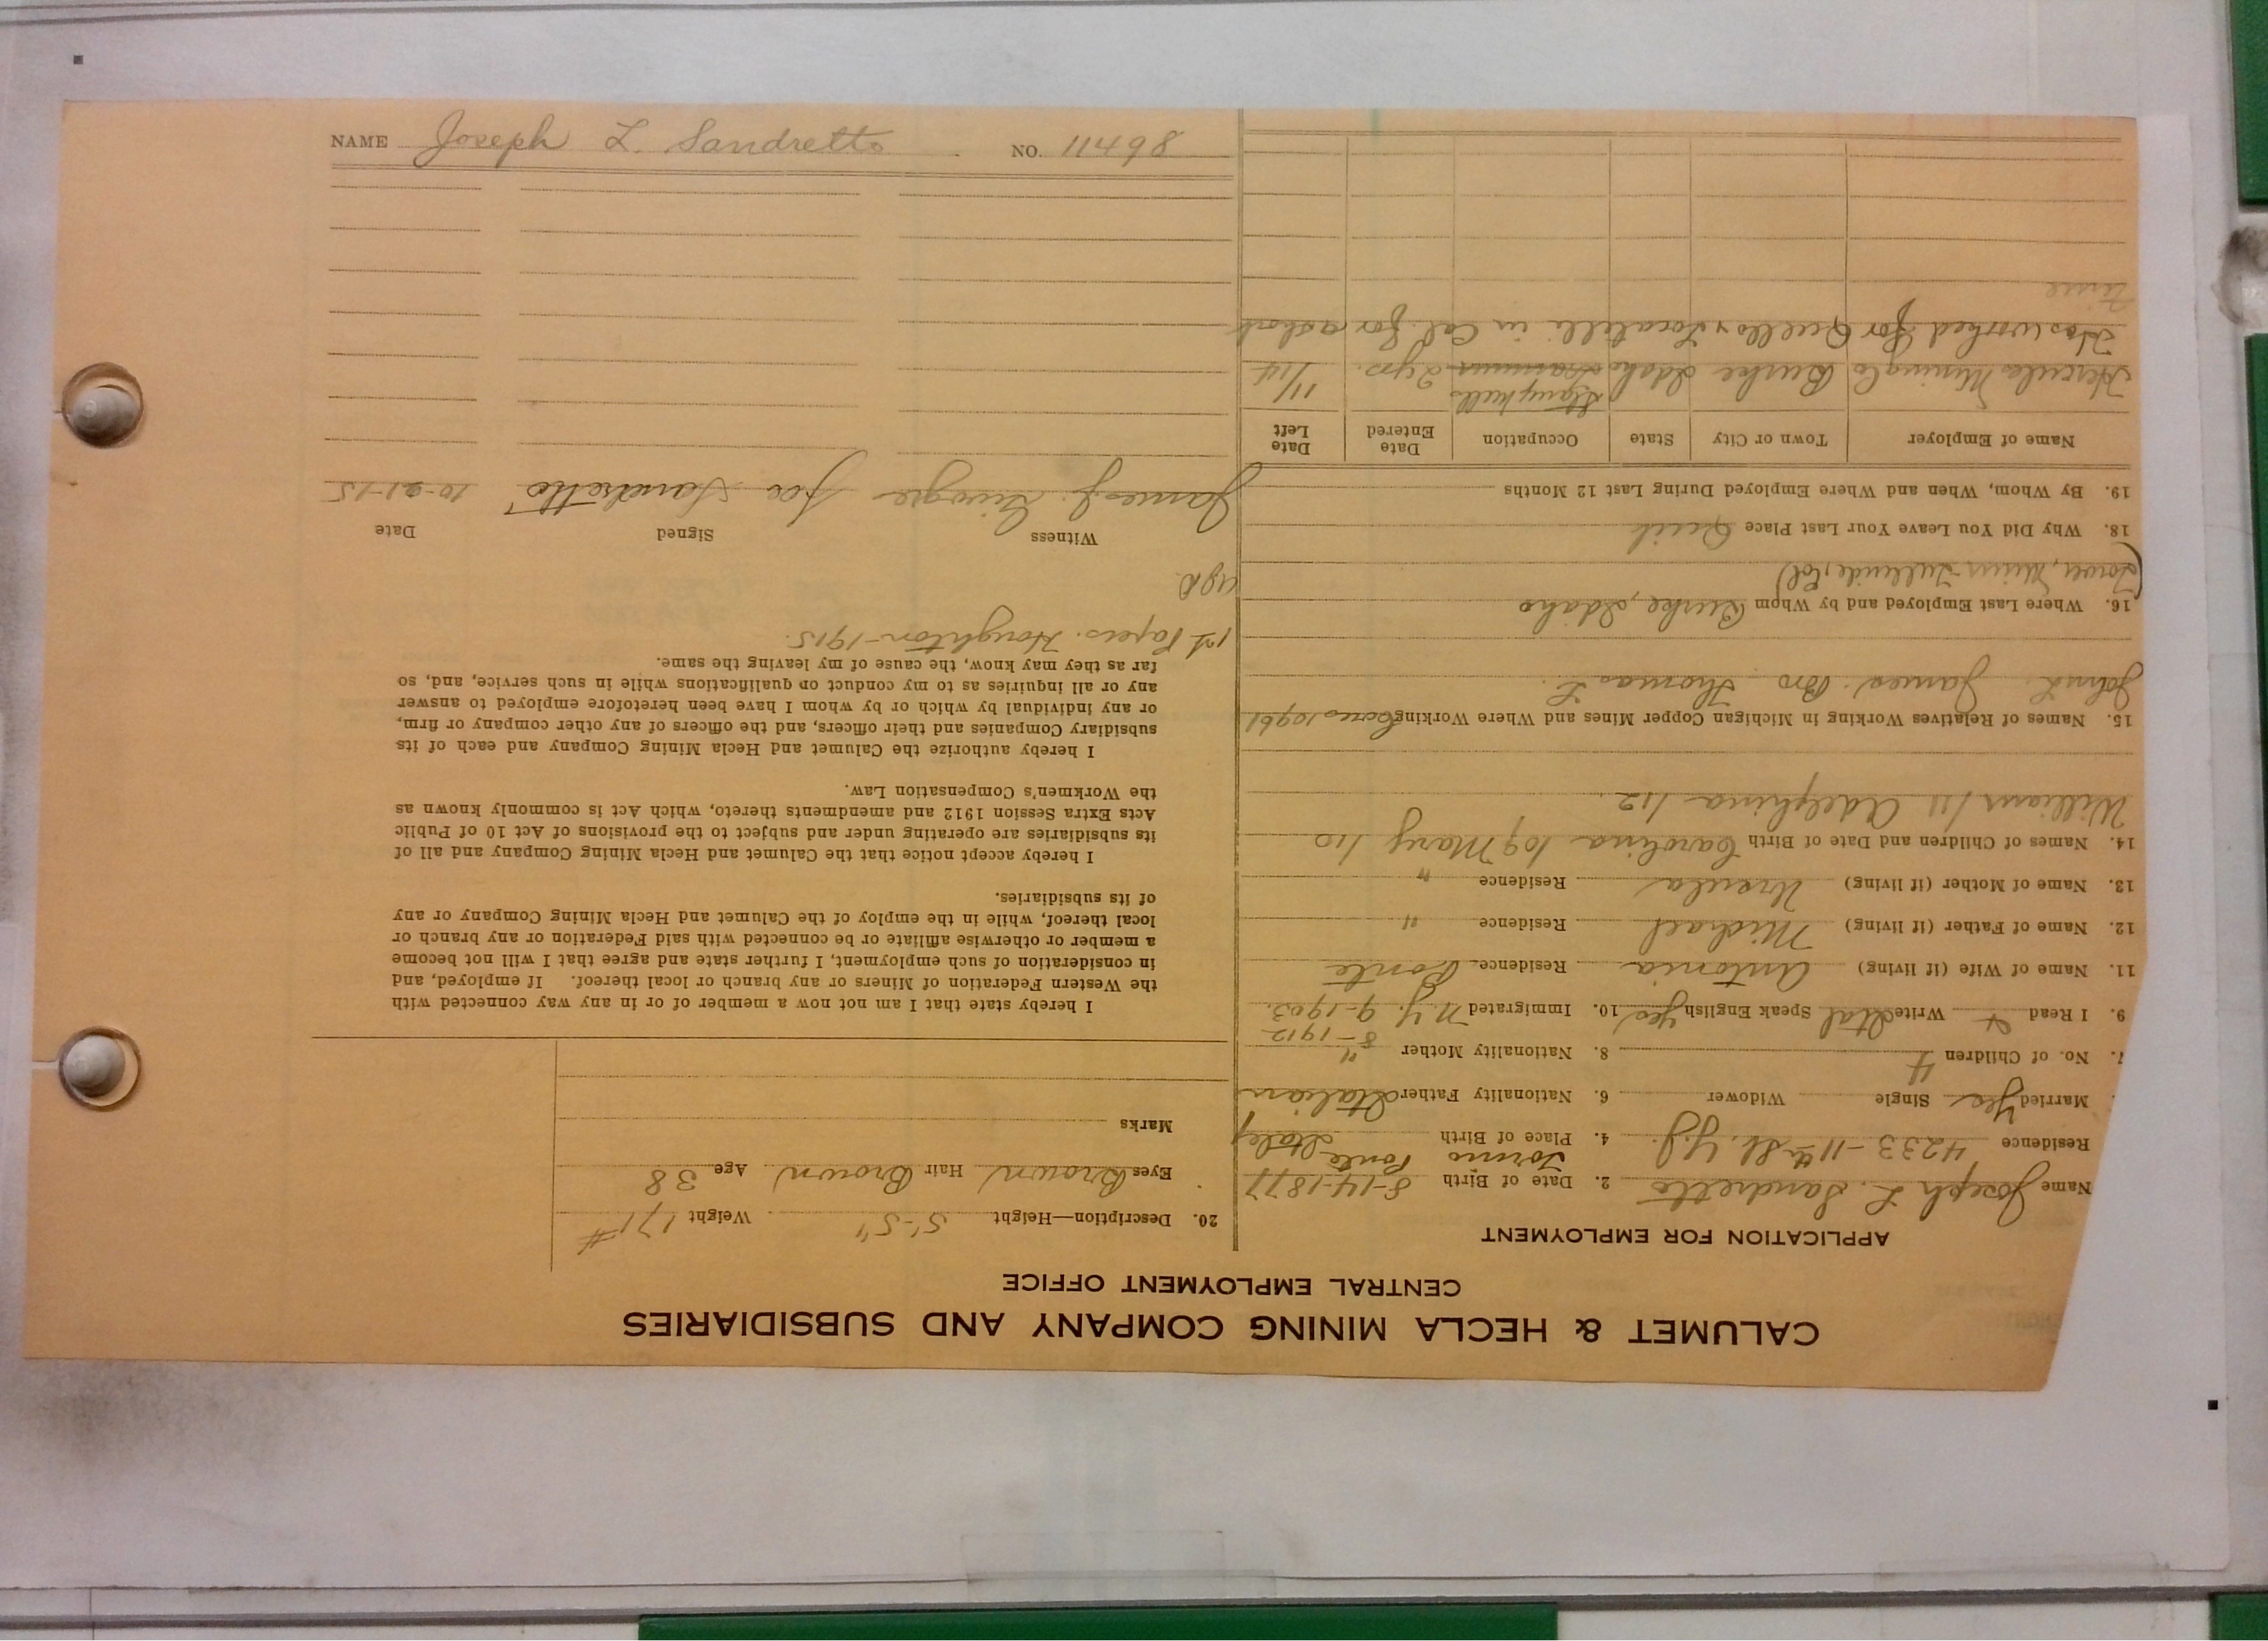 CALUMET & HECLA MINING COMPANY AND SUBSIDIARIES
CENTRAL EMPLOYMENT OFFICE
APPLICATION FOR EMPLOYMENT
Name Joseph L. Sandretto 2. Date of Birth 8-14-1877
Residence 4233-11th St. Y.J. 4. Place of Birth Torino Ponte Italy
Married Yes Single Widower 6. Nationality Father Italian
7. No. of Children 4 8. Nationality Mother "
8-1912
9. I Read & Write Ital Speak English Yes 10. Immigrated N.Y. 9-1903
11. Name of Wife (if living) Antonia Residence Ponte
12. Name of Father (if living) Michael Residence "
13. Name of Mother (if living) Residence "
14. Names of Children and Date of Birth Carolina /09 Mary /10
William /11 Adelphina /12.
15. Names of Relatives Working in Michigan Copper Mines and Where Working 10961
John L. James Bro Thomas L.
16. Where Last Employed and by Whom Burke, Idaho
18. Why Did You Leave Your Last Place Quit
19. By Whom, When and Where Employed During Last 12 Months
Name of Employer Town or City State Occupation Date Entered Date Left
Hercules Mining Co Burke Idaho 2 yrs. 11/14
Has worked for in Cal. for a short
time
20. Description—Height 5'-5" Weight 171#
Eyes Brown Hair Brown Age 38
Marks
I hereby state that I am not now a member of or in any way connected with
the Western Federation of Miners or any branch or local thereof. If employed, and
in consideration of such employment, I further state and agree that I will not become
a member or otherwise affiliate or be connected with said Federation or any branch or
local thereof, while in the employ of the Calumet and Hecla Mining Company or any
of its subsidiaries.
I hereby accept notice that the Calumet and Hecla Mining Company and all of
its subsidiaries are operating under and subject to the provisions of Act 10 of Public
Acts Extra Session 1912 and amendments thereto, which Act is commonly known as
the Workmen's Compensation Law.
I hereby authorize the Calumet and Hecla Mining Company and each of its
subsidiary Companies and their officers, and the officers of any other company or firm,
or any individual by which or by whom I have been heretofore employed to answer
any or all inquiries as to my conduct or qualifications while in such service, and, so
far as they may know, the cause of my leaving the same.
1st Papers. Houghton-1915.
Witness Signed Date
James J. Joe Sandretto 10-21-15
NAME Joseph L. Sandretto NO. 11498